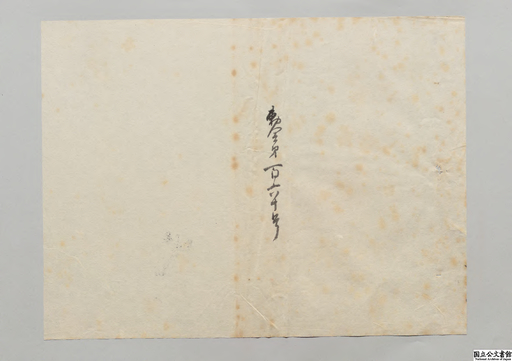 勅令第百六十号
国立公文書館
National Archives of Japan